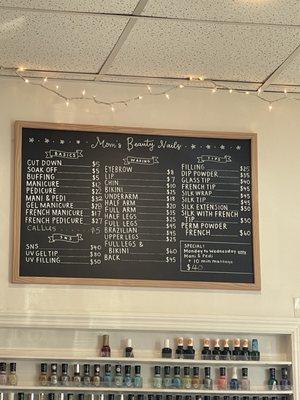 Mom's Beauty Nails
BASICS
CUT DOWN $5
SOAK OFF $5
BUFFING $5
MANICURE $13
PEDICURE $22
MANI & PEDI $32
GEL MANICURE $30
FRENCH MANICURE $17
FRENCH PEDICURE $27
CALLUS
SNS
SNS $40
UV GEL $50
UV FILLING $50
WAXING
EYEBROW $8
LIP
CHIN
BIKINI
UNDERARM
HALF ARM
FULL ARM
HALF LEGS
FULL LEGS $45
BRAZILIAN $45
UPPER LEGS $25
FULL LEGS &
BIKINI $60
BACK $45
TIPS
FILLING $25
DIP POWDER
GLASS TIP $40
FRENCH TIP $45
SILK WRAP
SILK TIP
SILK EXTENSION
SILK WITH FRENCH
TIP $50
PERM POWDER
FRENCH $60
SPECIAL!
Monday to Wednesday
Mani & Pedi
+ 10 min massage
$40